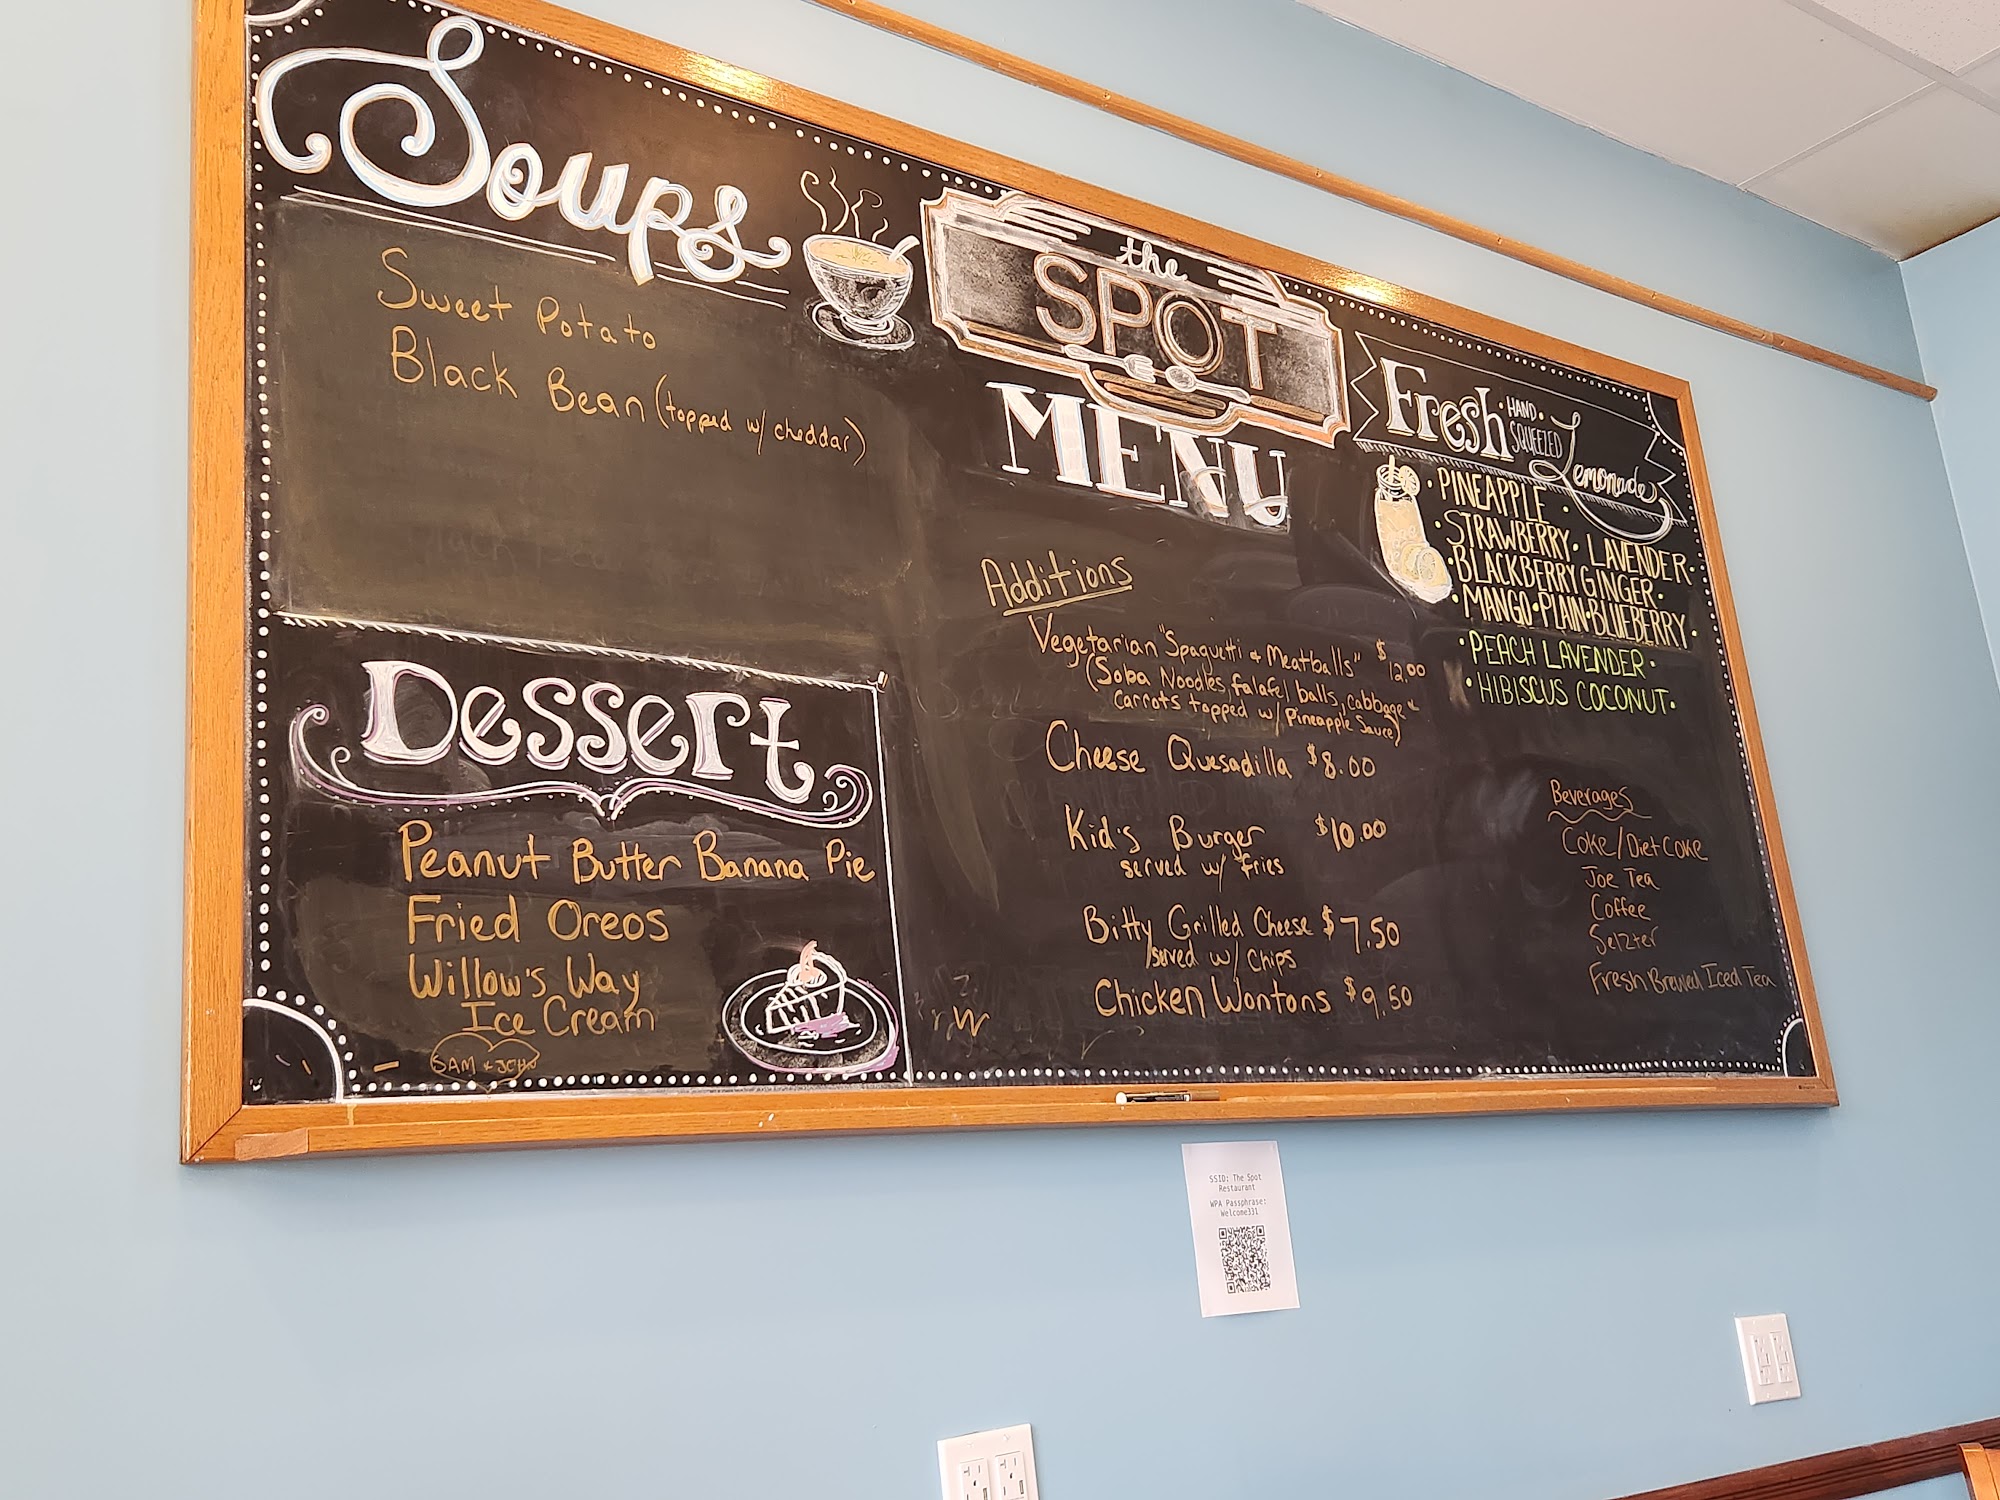 Soups
Sweet Potato
Black Bean (topped w/ cheddar)
Dessert
Peanut Butter Banana Pie
Fried Oreos
Willow's Way
Ice Cream
SAM & JOHN
the
SPOT
MENU
Additions
Vegetarian "Spaguetti & Meatballs" $12.00
(Soba Noodles, falafel balls, cabbage &
Carrots topped w/ Pineapple Sauce)
Cheese Quesadilla $8.00
Kid's Burger $10.00
served w/ fries
Bitty Grilled Cheese $7.50
served w/ chips
Chicken Wontons $9.50
Fresh HAND SQUEEZED Lemonade
• PINEAPPLE •
• STRAWBERRY • LAVENDER •
• BLACKBERRY GINGER •
• MANGO • PLAIN • BLUEBERRY •
• PEACH LAVENDER •
• HIBISCUS COCONUT •
Beverages
Coke/Diet Coke
Joe Tea
Coffee
Selzter
Fresh Brewed Iced Tea
SSID: The Spot
Restaurant
WPA Passphrase:
Welcome331